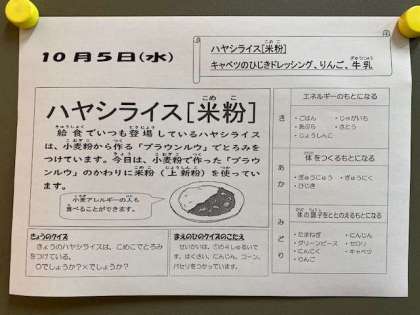 10月5日(水)
ハヤシライス[米粉]
キャベツのひじきドレッシング、りんご、牛乳
ハヤシライス[米粉]
給食でいつも登場しているハヤシライス
は、小麦粉から作る「ブラウンルウ」でとろみを
つけています。今日は、小麦粉で作った「ブラウ
ンルウ」のかわりに米粉(上新粉)を使ってい
ます。
小麦アレルギーの人も
食べることができます。
エネルギーのもとになる
き
・ごはん ・じゃがいも
・あぶら ・さとう
・じょうしんこ
体をつくるもとになる
あか
・ぎゅうにゅう ・ぎゅうにく
・ひじき
体の調子をととのえるもとになる
みどり
・たまねぎ ・にんじん
・グリーンピース ・セロリ
・にんにく ・キャベツ
・りんご
きょうのクイズ
きょうのハヤシライスは、こめこでとろみ
をつけている。
○でしょうか?×でしょうか?
まえのひのクイズのこたえ
せいかいは、②の4しゅるいで
す。はくさい、にんじん、コーン、
パセリをつかっています。